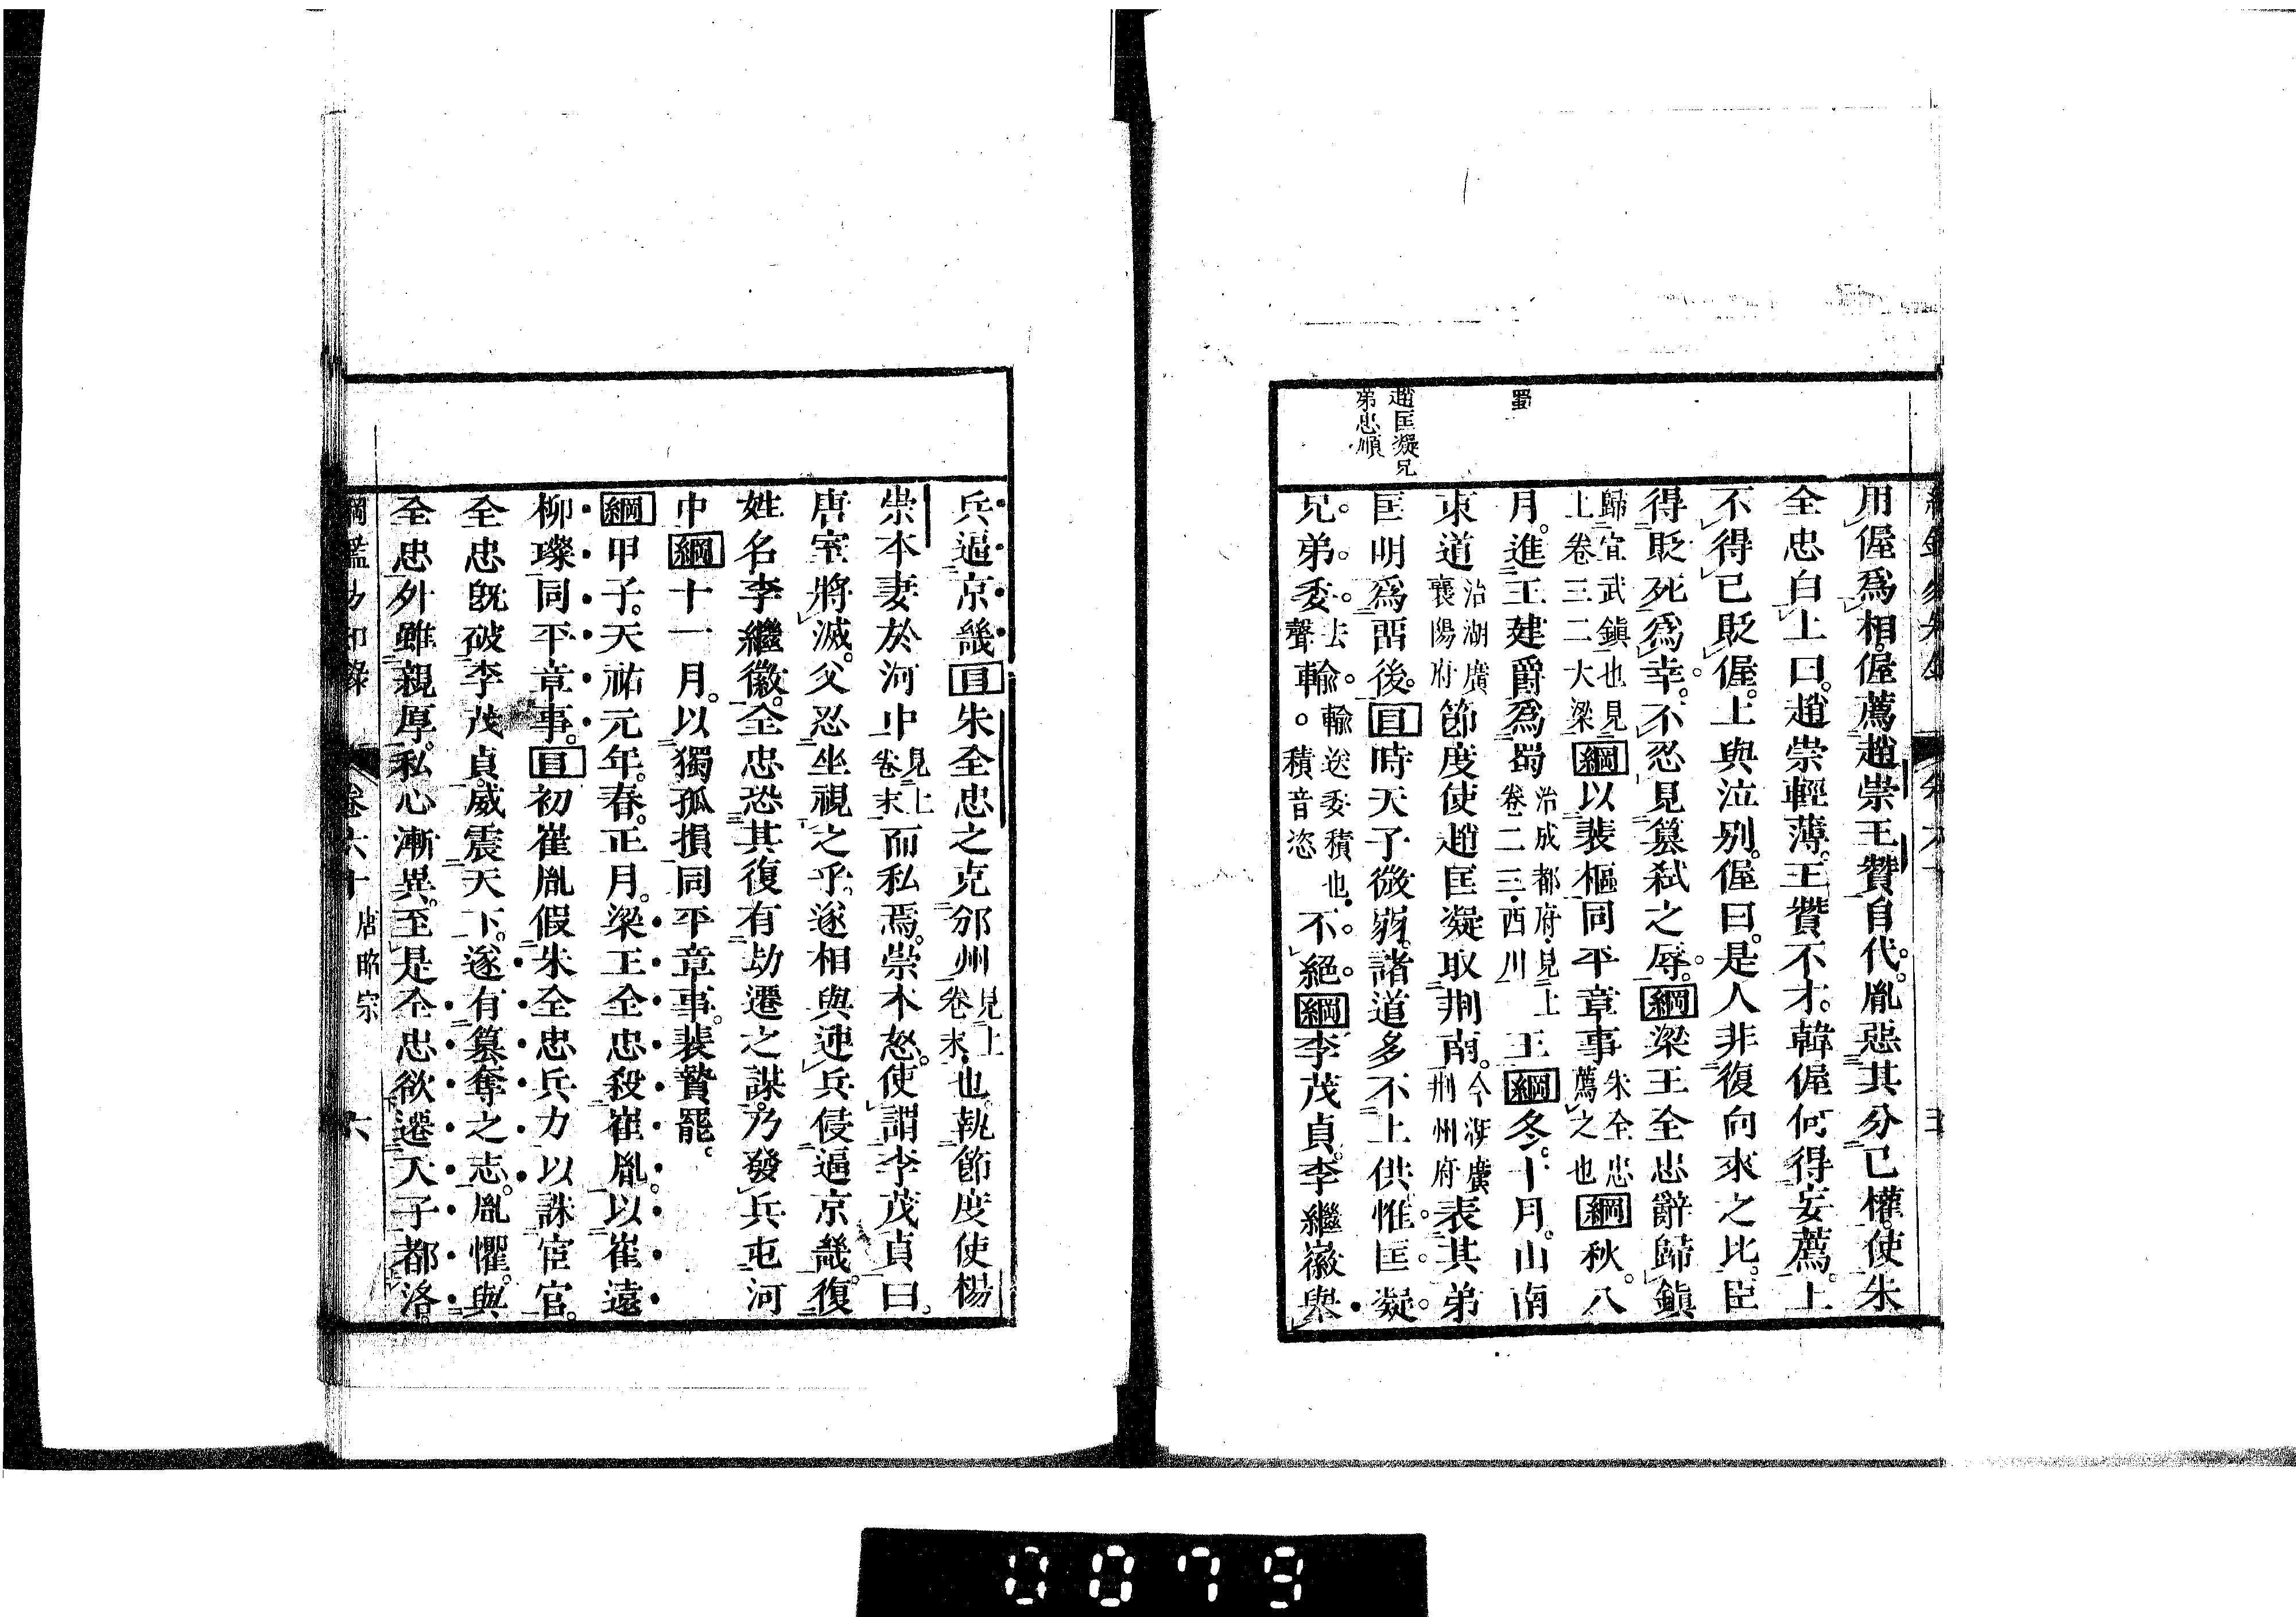 蜀
趙匡凝兄
弟忠順
用偓爲相。偓薦趙崇王贊自代。胤惡其分己權。使朱
全忠白上曰。趙崇輕薄。王贊不才。韓偓何得妄薦。上
不得已貶偓。上與泣別。偓曰。是人非復向來之比。臣
得貶死爲幸。不忍見簒弑之辱。綱梁王全忠辭歸鎭
歸宣武鎭也見
上卷三二大梁
綱以裴樞同平章事
朱全忠
薦之也
綱秋。八
月。進王建爵爲蜀
治成都府見上
卷二三西川
王綱冬。十月。山南
東道
治湖廣
襄陽府
節度使趙匡凝取荆南。
今湖廣
荆州府
表其弟
匡明爲畱後。目時天子微弱。諸道多不上供惟匡凝
兄弟委
去
聲
輸。
輸送委積也
積音恣
不絕綱李茂貞。李繼徽舉
兵逼京畿目朱全忠之克邠州
見上
卷末
也。執節度使楊
崇本妻於河中
見上
卷末
而私焉。崇本怒。使謂李茂貞曰。
唐室將滅。父忍坐視之乎。遂相與連兵侵逼京畿。復
姓名李繼徽。全忠恐其復有劫遷之謀。乃發兵屯河
中綱十一月。以獨孤損同平章事。裴贄罷。
綱甲子。天祐元年。春。正月。梁王全忠殺崔胤。以崔遠
柳璨同平章事。目初崔胤假朱全忠兵力以誅宦官。
全忠旣破李茂貞威震天下。遂有簒奪之志。胤懼。與
全忠外雖親厚。私心漸異。至是全忠欲遷天子都洛。
卷六十 唐昭宗 六
0079